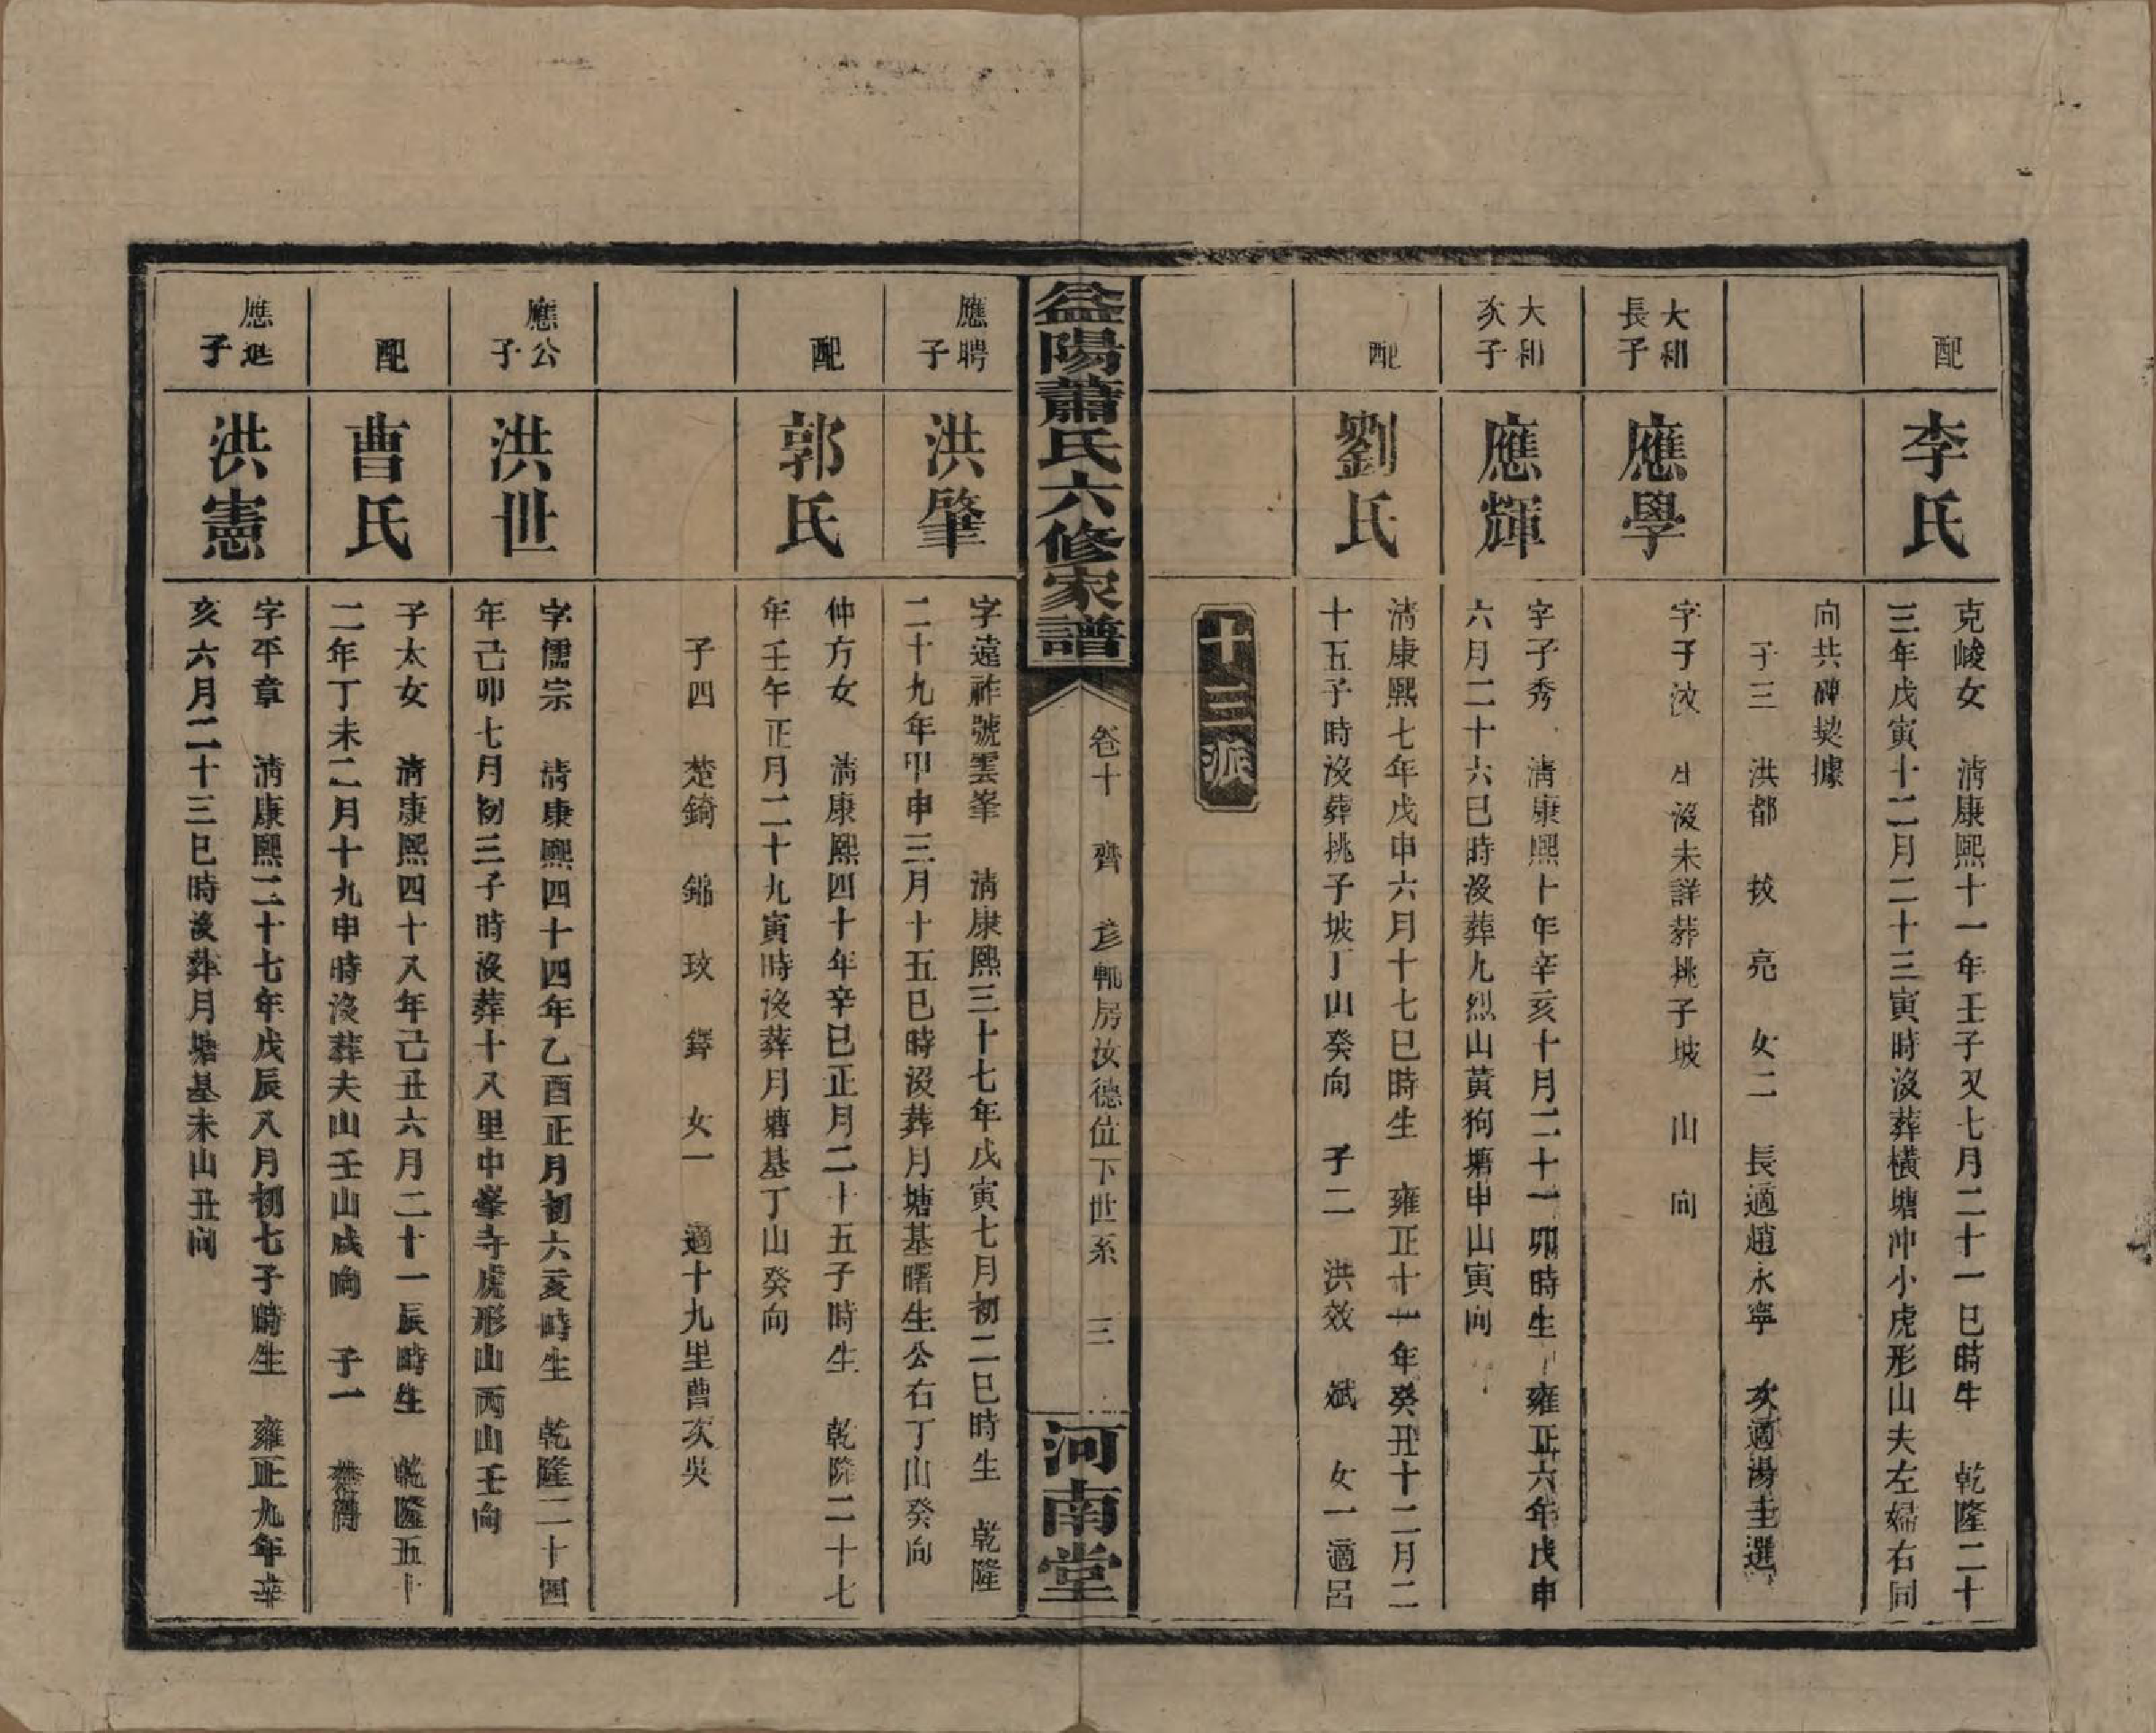 配
李氏
克峻女　清康熙十一年壬子又七月二十一巳時生　乾隆二十
三年戊寅十二月二十三寅時沒葬橫塘冲小虎形山夫左婦右同
向共碑契據
子三　洪都　拔　亮　女二　長適趙永寧　次適湯圭選
大和
長子
應學
字子汝　生沒未詳葬桃子坡　山　向
大和
次子
應輝
字子秀　清康熙十年辛亥十月二十一卯時生　雍正六年戊申
六月二十六巳時沒葬九烈山黃狗塘申山寅向
配
劉氏
清康熙七年戊申六月十七巳時生　雍正十一年癸丑十二月二
十五子時沒葬桃子坡丁山癸向　子二　洪效　斌　女一適呂
十三派
益陽蕭氏六修家譜
卷十　齊　彥軏房汝德位下世系　三
河南堂
應聘
子
洪肇
字遠祚號雲峯　清康熙三十七年戊寅七月初二巳時生　乾隆
二十九年甲申三月十五巳時沒葬月塘基曙生公右丁山癸向
配
郭氏
仲方女　清康熙四十年辛巳正月二十五子時生　乾隆二十七
年壬午正月二十九寅時沒葬月塘基丁山癸向
子四　楚錡　錦　玟　鐸　女一　適十九里曹次吳
應公
子
洪世
字儒宗　清康熙四十四年乙酉正月初六亥時生　乾隆二十四
年己卯七月初三子時沒葬十八里中峯寺虎形山丙山壬向
配
曹氏
子太女　清康熙四十八年己丑六月二十一辰時生　乾隆五十
二年丁未二月十九申時沒葬夫山壬山成向　子一　楚
應選
子
洪憲
字平章　清康熙二十七年戊辰八月初七子時生　雍正九年辛
亥六月二十三巳時沒葬月塘基未山丑向